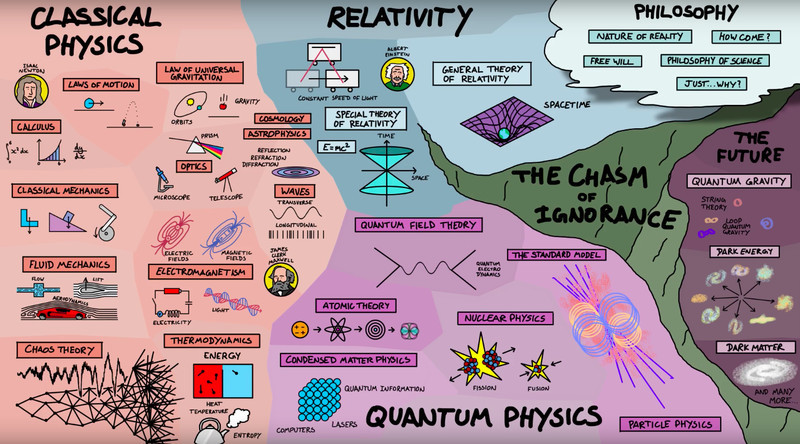 CLASSICAL
PHYSICS
ISAAC
NEWTON
LAWS OF MOTION
LAW OF UNIVERSAL
GRAVITATION
ORBITS
GRAVITY
CALCULUS
∫x²dx
dy/dx
PRISM
OPTICS
MICROSCOPE
TELESCOPE
COSMOLOGY
ASTROPHYSICS
REFLECTION
REFRACTION
DIFFRACTION
CLASSICAL MECHANICS
WAVES
TRANSVERSE
LONGITUDINAL
ELECTRIC
FIELDS
MAGNETIC
FIELDS
JAMES
CLERK
MAXWELL
ELECTROMAGNETISM
ELECTRICITY
LIGHT
FLUID MECHANICS
FLOW
LIFT
AERODYNAMICS
CHAOS THEORY
THERMODYNAMICS
ENERGY
HEAT
TEMPERATURE
ENTROPY
RELATIVITY
ALBERT
EINSTEIN
CONSTANT SPEED OF LIGHT
SPECIAL THEORY
OF RELATIVITY
E=mc²
TIME
SPACE
GENERAL THEORY
OF RELATIVITY
SPACETIME
PHILOSOPHY
NATURE OF REALITY
HOW COME?
FREE WILL
PHILOSOPHY OF SCIENCE
JUST...WHY?
THE CHASM
OF
IGNORANCE
THE
FUTURE
QUANTUM GRAVITY
STRING
THEORY
LOOP
QUANTUM
GRAVITY
DARK ENERGY
DARK MATTER
AND MANY
MORE...
QUANTUM FIELD THEORY
QUANTUM
ELECTRO
DYNAMICS
THE STANDARD MODEL
ATOMIC THEORY
NUCLEAR PHYSICS
FISSION
FUSION
CONDENSED MATTER PHYSICS
QUANTUM INFORMATION
LASERS
COMPUTERS
QUANTUM PHYSICS
PARTICLE PHYSICS